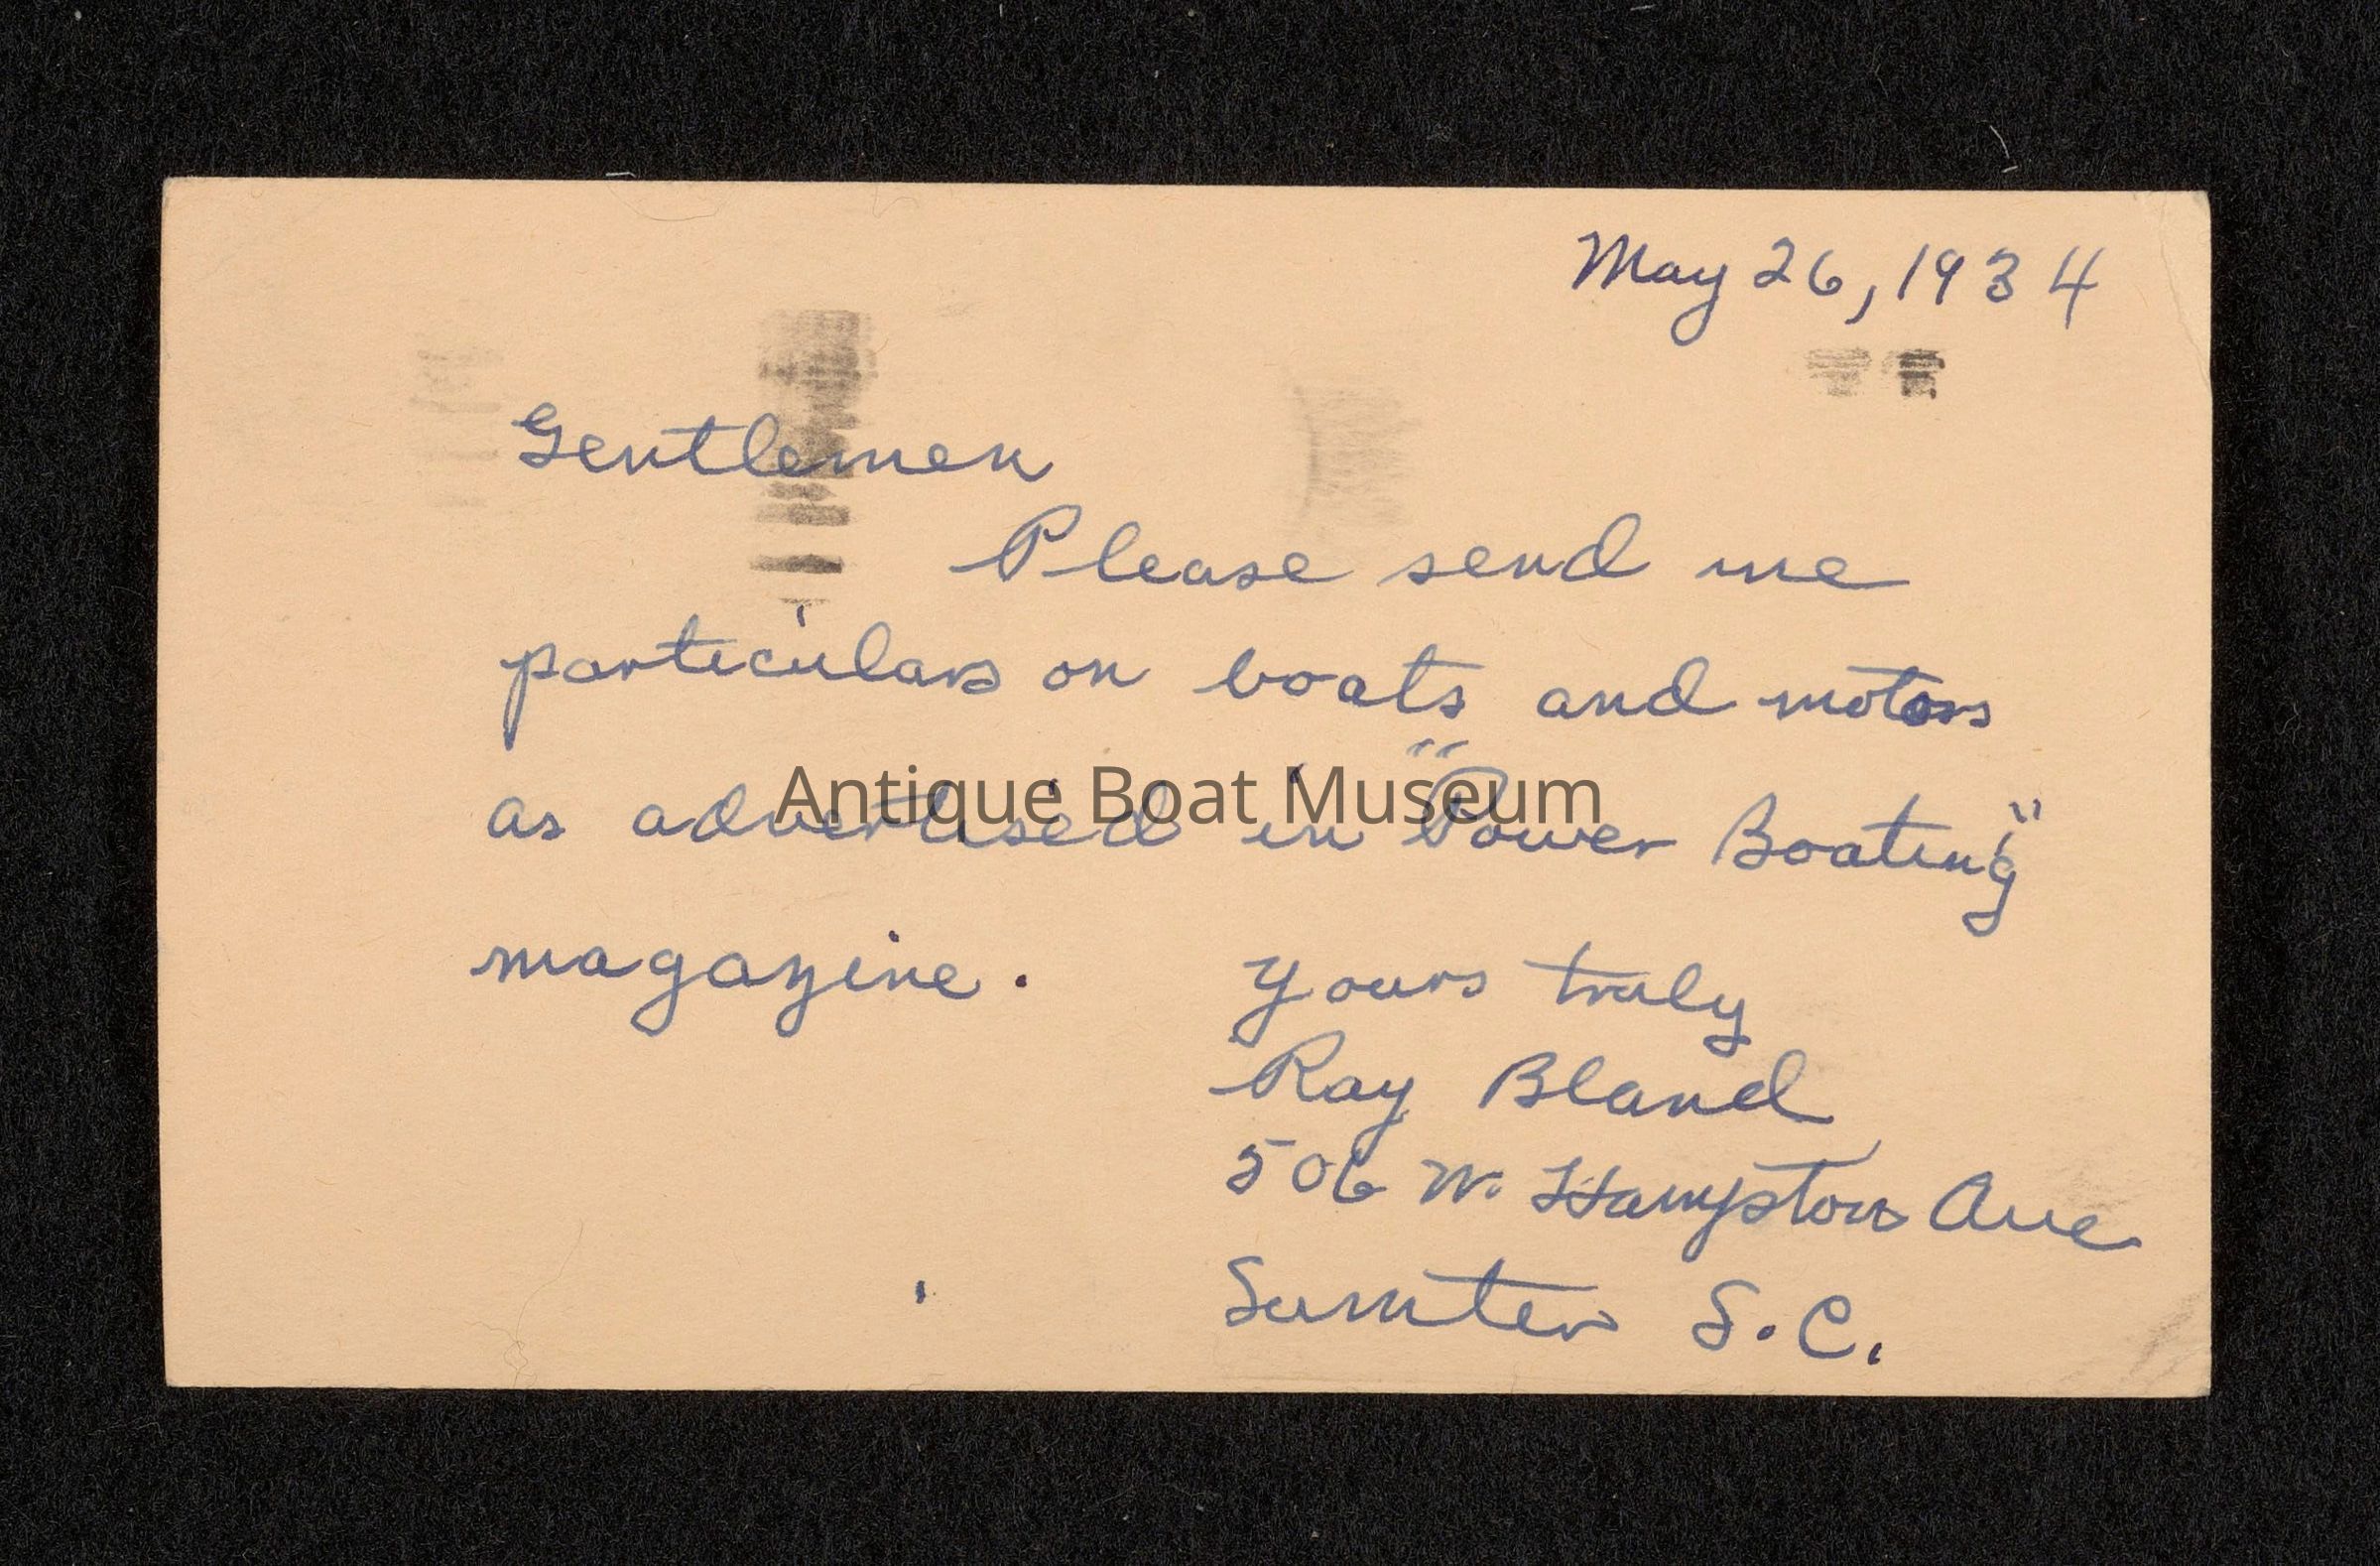 May 26, 1934
Gentlemen
Please send me
particulars on boats and motors
as advertised in "Power Boating"
magazine.
Yours truly
Ray Bland
506 W. Hampton Ave
Sumter S.C.
Antique Boat Museum